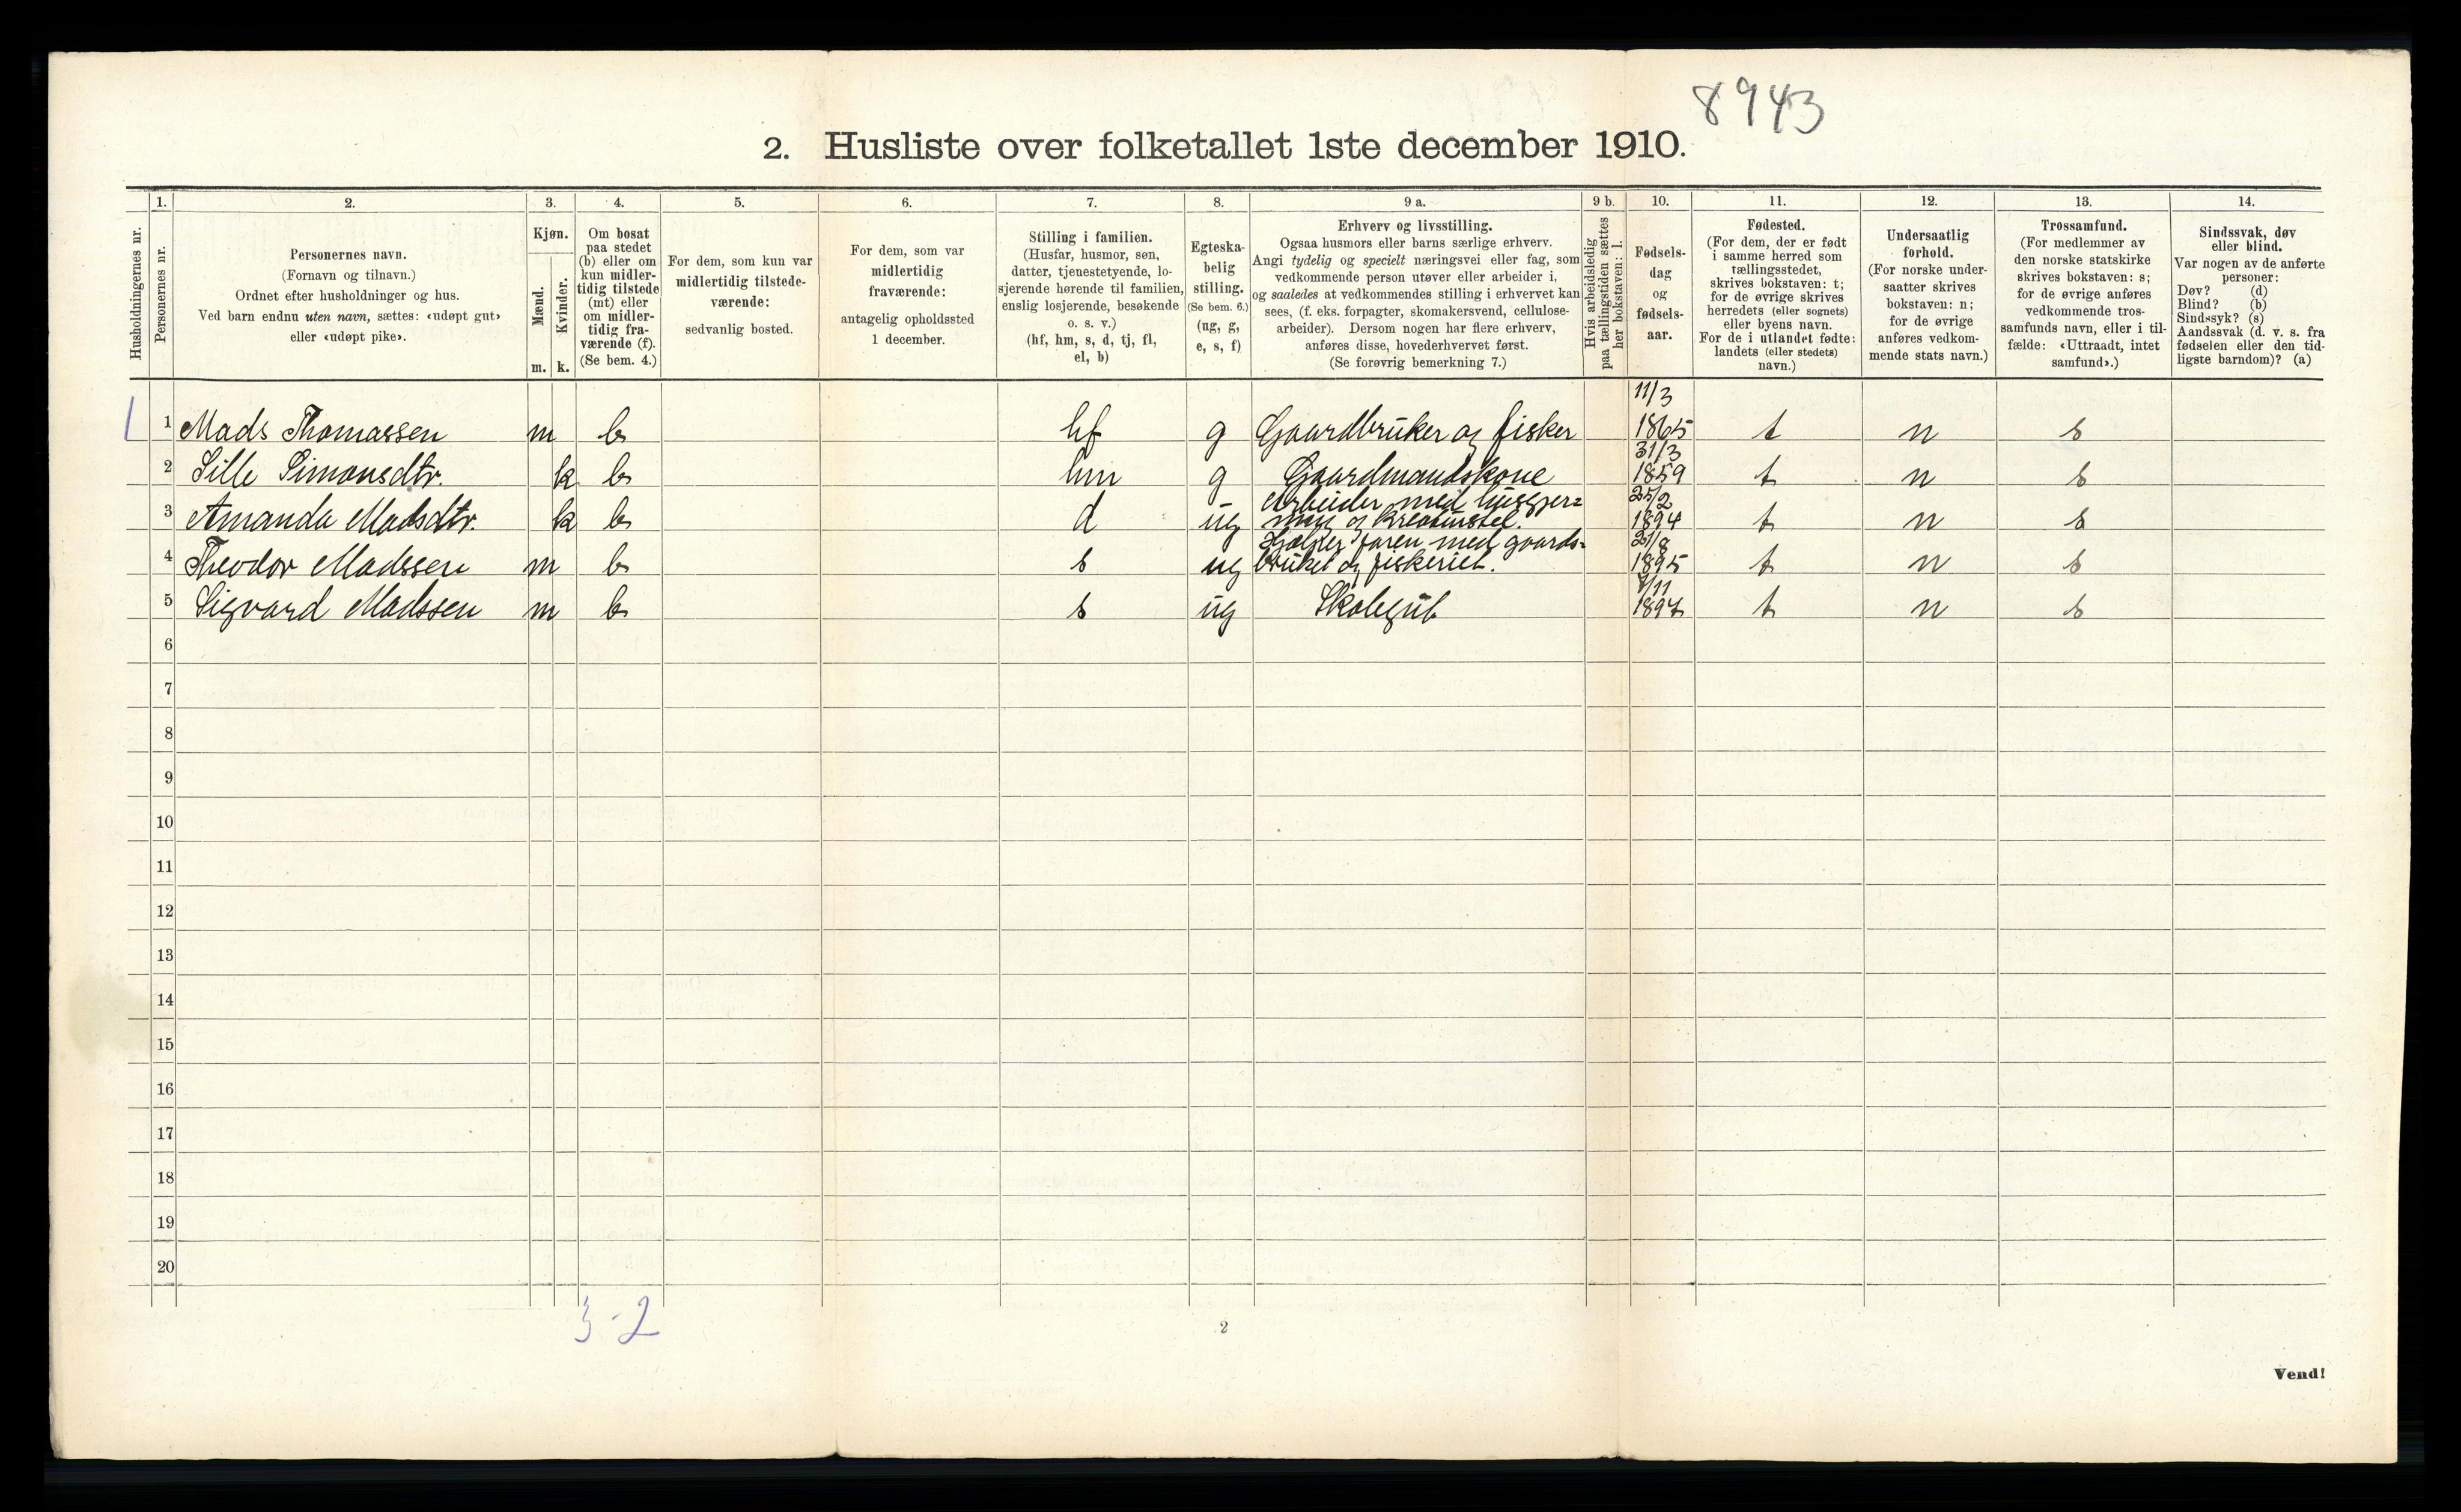 8943
2. Husliste over folketallet 1ste december 1910.
Husholdningernes nr.
1.
Personernes nr.
2.
Personernes navn.
(Fornavn og tilnavn.)
Ordnet efter husholdninger og hus.
Ved barn endnu uten navn, sættes: «udøpt gut»
eller «udøpt pike».
3.
Kjøn.
Mænd.
Kvinder.
m. k.
4.
Om bosat
paa stedet
(b) eller om
kun midler-
tidig tilstede
(mt) eller
om midler-
tidig fra-
værende (f).
(Se bem. 4.)
5.
For dem, som kun var
midlertidig tilstede-
værende:
sedvanlig bosted.
6.
For dem, som var
midlertidig
fraværende:
antagelig opholdssted
1 december.
7.
Stilling i familien.
(Husfar, husmor, søn,
datter, tjenestetyende, lo-
sjerende hørende til familien,
enslig losjerende, besøkende
o. s. v.)
(hf, hm, s, d, tj, fl,
el, b)
8.
Egteska-
belig
stilling.
(Se bem. 6.)
(ug, g,
e, s, f)
9 a.
Erhverv og livsstilling.
Ogsaa husmors eller barns særlige erhverv.
Angi tydelig og specielt næringsvei eller fag, som
vedkommende person utøver eller arbeider i,
og saaledes at vedkommendes stilling i erhvervet kan
sees, (f. eks. forpagter, skomakersvend, cellulose-
arbeider). Dersom nogen har flere erhverv,
anføres disse, hovederhvervet først.
(Se forøvrig bemerkning 7.)
9 b.
Hvis arbeidsledig
paa tællingstiden sættes
her bokstaven: l.
10.
Fødsels-
dag
og
fødsels-
aar.
11.
Fødested.
(For dem, der er født
i samme herred som
tællingsstedet,
skrives bokstaven: t;
for de øvrige skrives
herredets (eller sognets)
eller byens navn.
For de i utlandet fødte:
landets (eller stedets)
navn.)
12.
Undersaatlig
forhold.
(For norske under-
saatter skrives
bokstaven: n;
for de øvrige
anføres vedkom-
mende stats navn.)
13.
Trossamfund.
(For medlemmer av
den norske statskirke
skrives bokstaven: s;
for de øvrige anføres
vedkommende tros-
samfunds navn, eller i til-
fælde: «Uttraadt, intet
samfund».)
14.
Sindssvak, døv
eller blind.
Var nogen av de anførte
personer:
Døv? (d)
Blind? (b)
Sindssyk? (s)
Aandssvak (d. v. s. fra
fødselen eller den tid-
ligste barndom)? (a)
11/3
1 1 Mads Thomassen m b hf g Gaardbruker og fisker 1865 t n s
31/3
2 Sille Simonsdtr. k b hm g Gaardmandskone 1859 t n s
Arbeider med husgjer= 25/2
3 Amanda Madsdtr. k b d ug ning og kreaturstel. 1894 t n s
Hjælper faren med gaards= 21/8
4 Theodor Madssen m b s ug bruket og fiskeriet. 1895 t n s
7/11
5 Sigvard Madssen m b s ug Skolegut 1897 t n s
6
7
8
9
10
11
12
13
14
15
16
17
18
19
20
3-2
2
Vend!